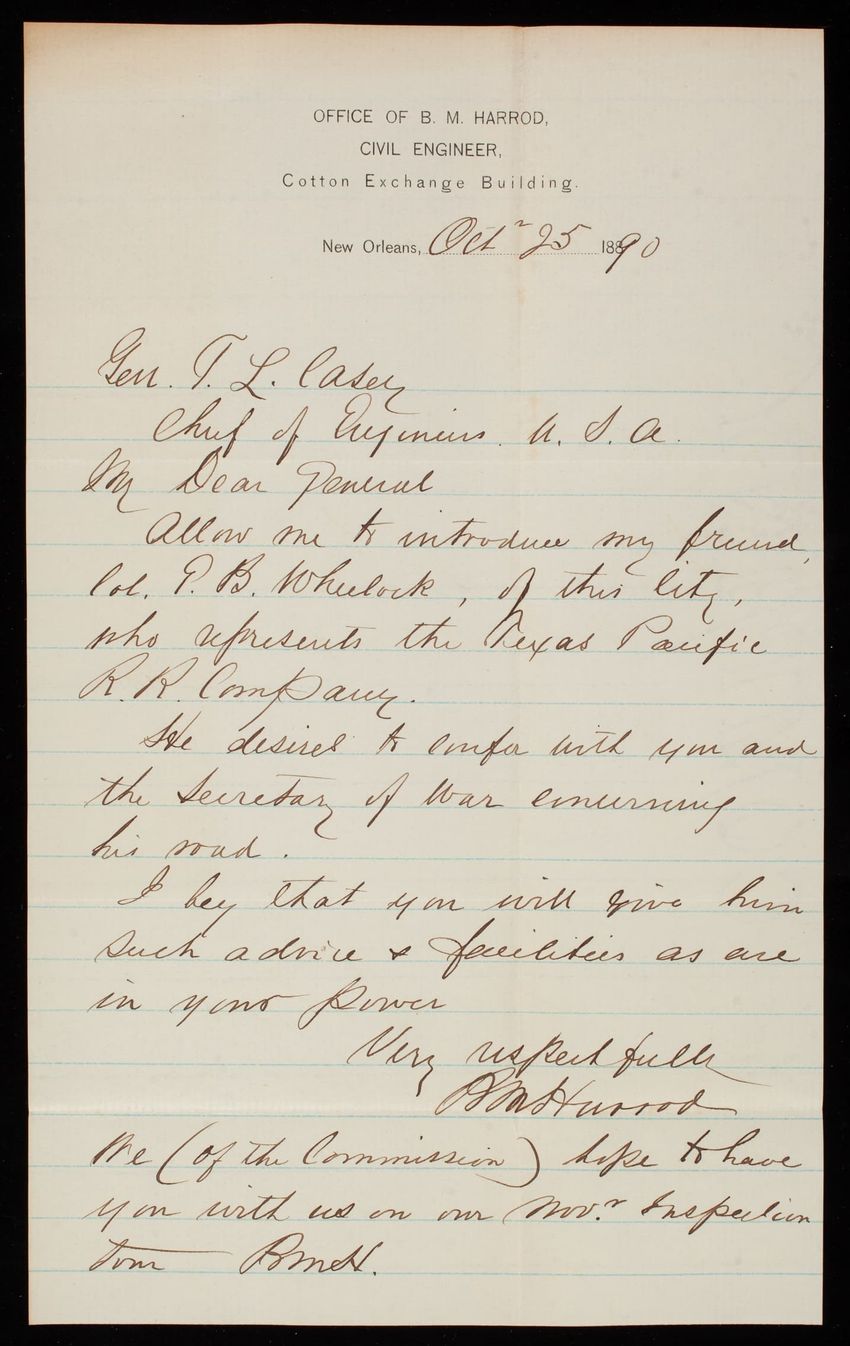 OFFICE OF B. M. HARROD,
CIVIL ENGINEER,
Cotton Exchange Building.
New Orleans, Octr 25 1890
Gen. T. L. Casey
Chief of Engineers. U. S. A.
My Dear General
Allow me to introduce my friend,
Col. P. B. Wheelock, of this City,
who represents the Texas Pacific
R. R. Company.
He desires to confer with you and
the Secretary of War concerning
his road.
I beg that you will give him
such advice & facilities as are
in your power
Very respectfully
BM Harrod
We (of the Commission) hope to have
you with us on our Novr. Inspection
tour BMH.